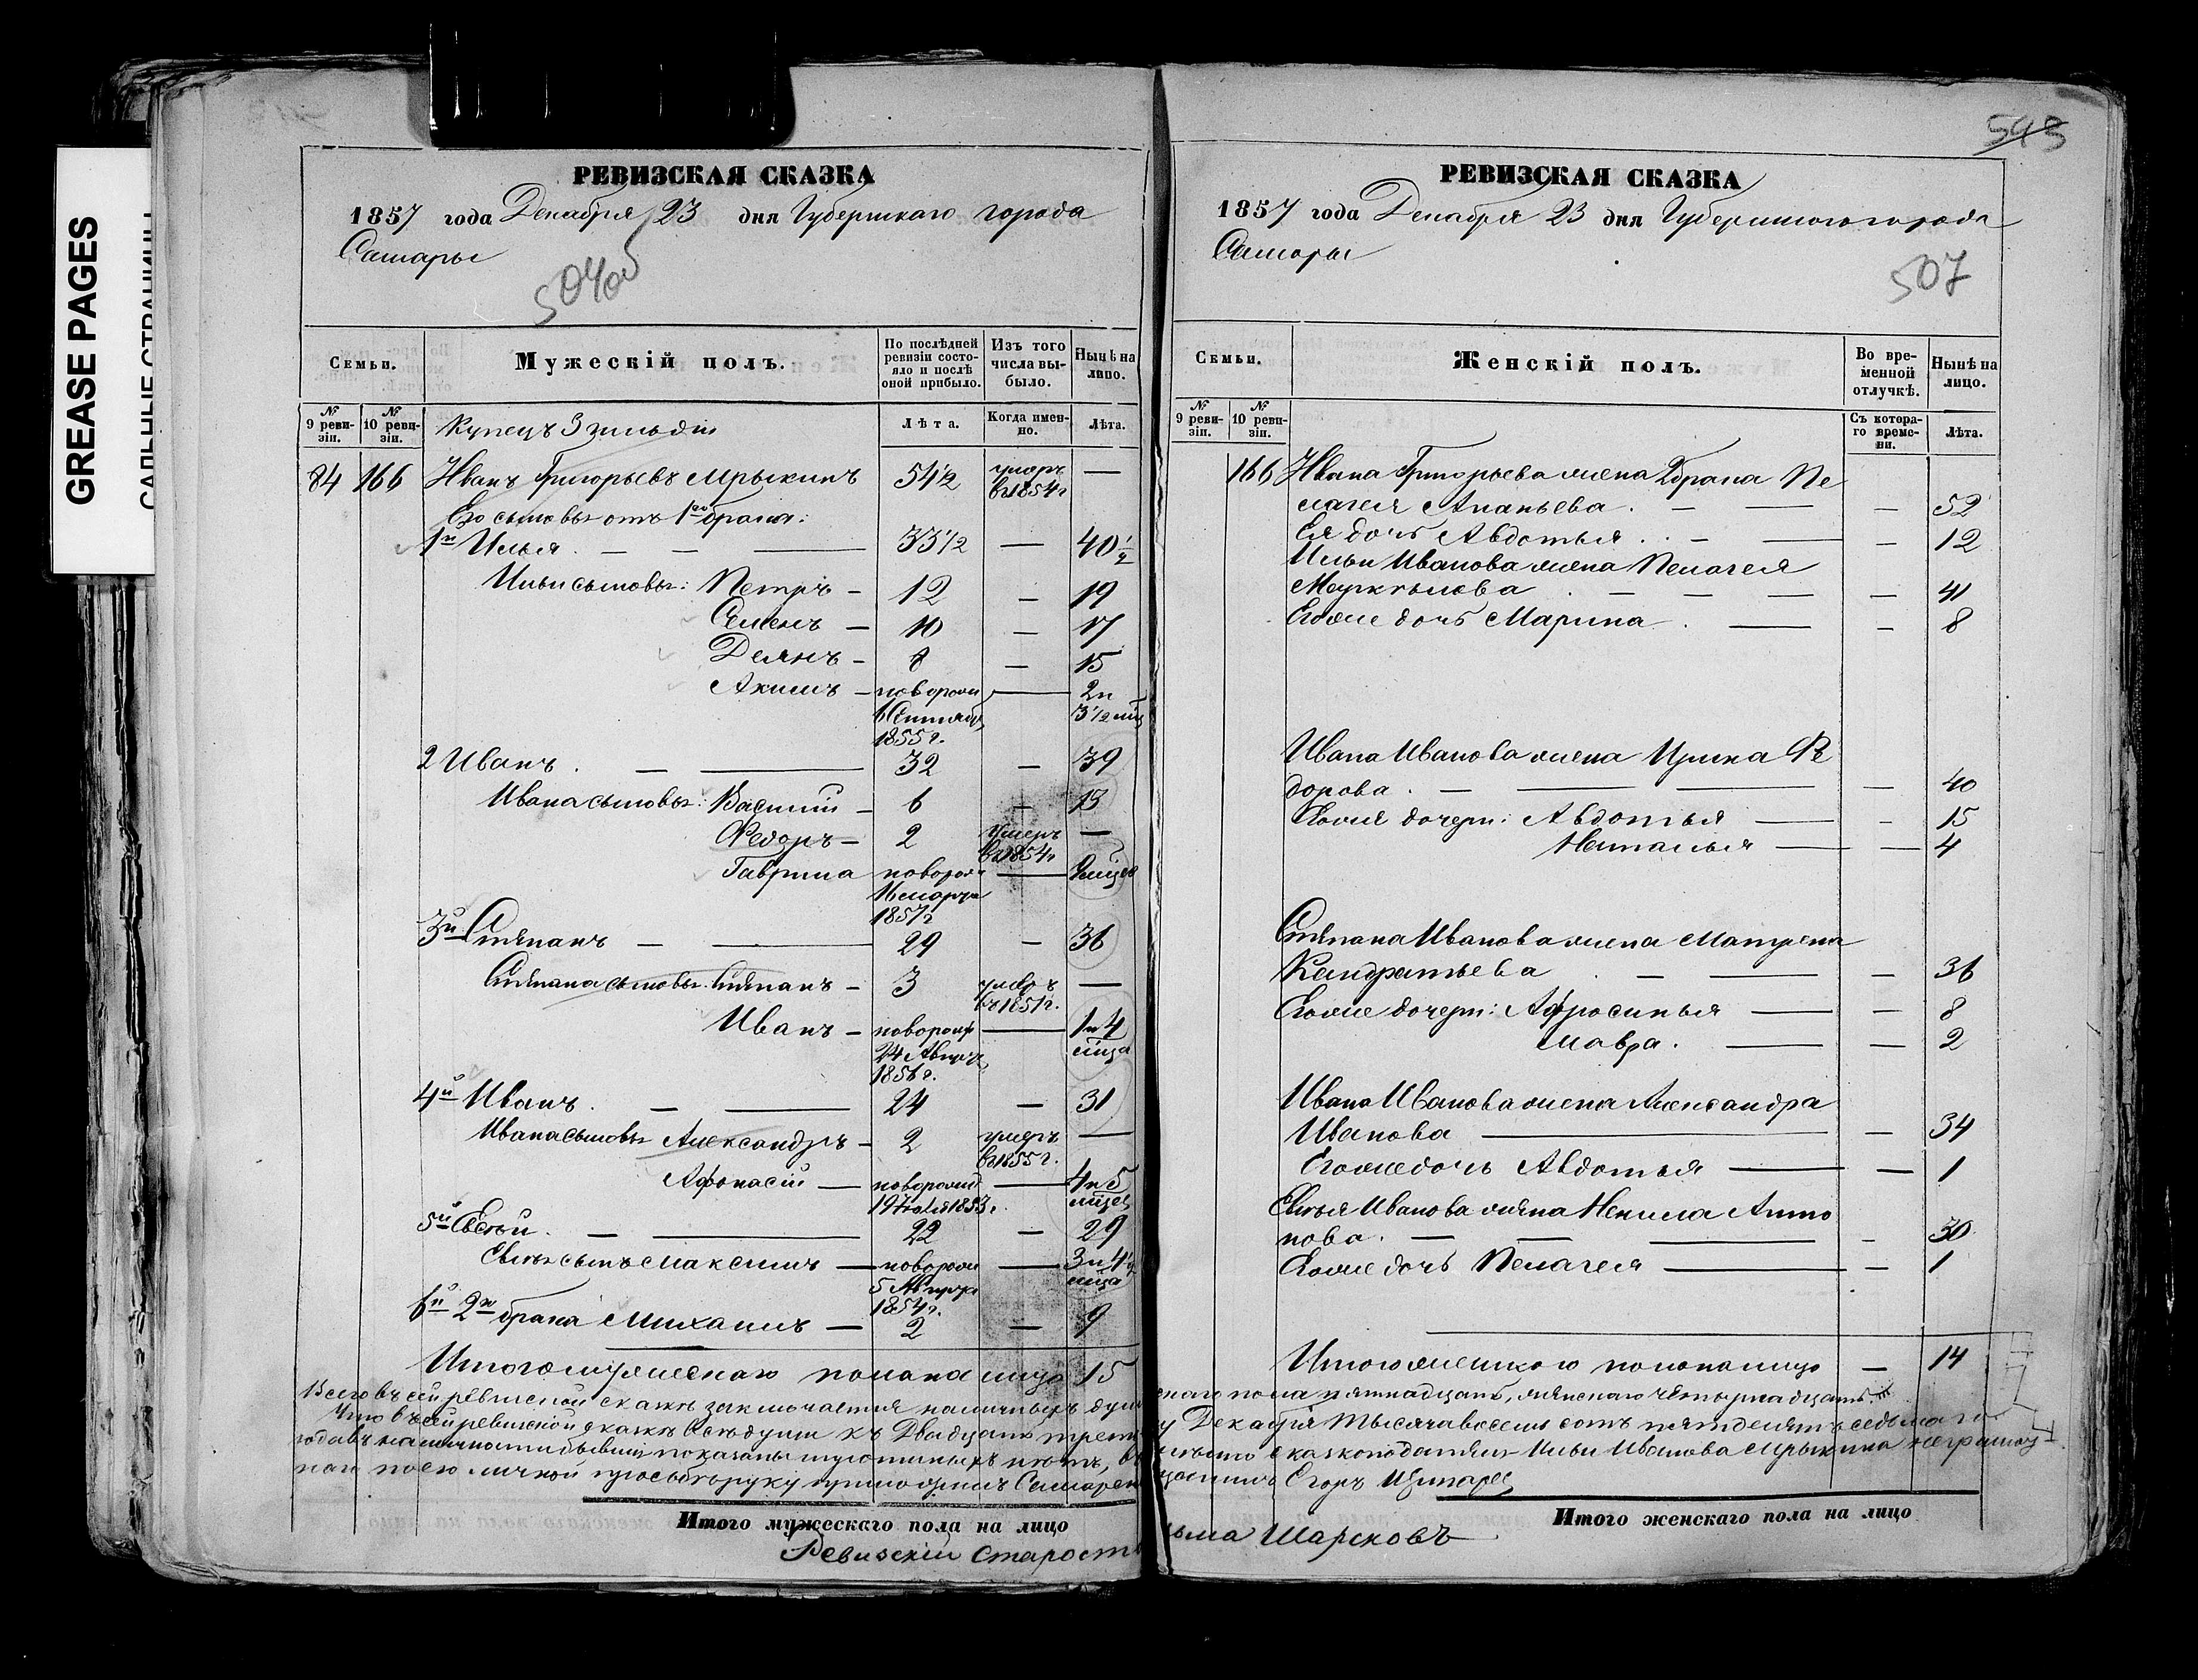 GREASE PAGES
РЕВИЗСКАЯ СКАЗКА
1857 года Декабря 23 дня Губернскаго города
Самары
Семьи.
Мужескій полъ.
По послѣдней ревизіи состояло и послѣ оной прибыло.
Изъ того числа выбыло.
Нынѣ на лицо.
№ 9 ревизіи.
№ 10 ревизіи.
Купецъ 3 гильдіи
Лѣта.
Когда именно.
Лѣта.
84 166 Иванъ Григорьевъ Мрыкинъ 54½ умеръ въ 1854 г —
Его сыновья отъ 1го брака:
1й Илья. — — 33½ — 40½
Ильи сыновья: Петръ — 12 — 19
Семенъ — 10 — 17
Демьнъ — 8 — 15
Акимъ — новорожд — 2 и
3½ мца
1855 г.
2 Иванъ. — — 32 — 39
Ивана сыновья: Василій — 6 — 13
Федоръ — 2 умеръ въ 1854 г —
Гаврила новорожд — 9 мцев
16 марта
1857 г
3й Степанъ — — 29 — 36
Степана сыновья: Степанъ — 3 умеръ въ 1851 г. —
Иванъ — новорожд — 1 и 4
24 Августа мца
1856 г.
4й Иванъ. — — 24 — 31
Ивана сыновья Александръ — 2 умеръ въ 1855 г. —
Афонасій — новорожд — 4 и 5
19 Іюля 1853 г. мцев
5й Евсѣй. — — 22 — 29
сынъ Максимъ — новорожд — 3 и 4½
5 Августа мца
1854 г.
6й 2го брака Михаилъ — 2 — 9
Итого мужескаго пола на лицо 15
Всего въ сей ревизской сказкѣ заключается наличныхъ душъ
Что въ сей ревизской сказкѣ всѣ души къ двадцать трет
года въ наличности бывшіе показаны и утоеныхъ нетъ,
по его личной просьбѣ руку приложилъ Самарск
Итого мужескаго пола на лицо
Ревизскій Старост
РЕВИЗСКАЯ СКАЗКА
1857 года Декабря 23 дня Губернскаго города
Самары
507
Семьи.
Женскій полъ.
Во временной отлучкѣ.
Нынѣ на лицо.
№ 9 ревизіи.
№ 10 ревизіи.
Съ котораго времени.
Лѣта.
166 Ивана Григорьева жена 2 брака Пе
лагея Ананьева. — — — 52
Ея дочь Авдотья. — — — 12
Ильи Иванова жена Пелагея
— — — — 41
Егоже дочь Марина. — — 8
Ивана Иванова жена Ирина Фе
дорова. — — — — 40
Егоже дочери: Авдотья — — 15
Наталья — — 4
Степана Иванова жена Матрена
Кандратьева. — — — 36
Егоже дочери: Афросинья — — 8
Мавра. — — 2
Ивана Иванова жена Александра
Иванова — — 34
Егоже дочь Авдотья — — 1
Евсѣя Иванова жена Ненила Анто
нова. — — — — 30
Егоже дочь Пелагея — — 1
Итого женскаго пола на лицо — 14
скаго пола пятнадцать, женскаго четырнадцать.
у Декабря тысяча восемь сотъ пятдесятъ седьмаго
сказкоподателя Ильи Иванова Мрыкина неграмот
Егоръ
Итого женскаго пола на лицо
Шарсковъ